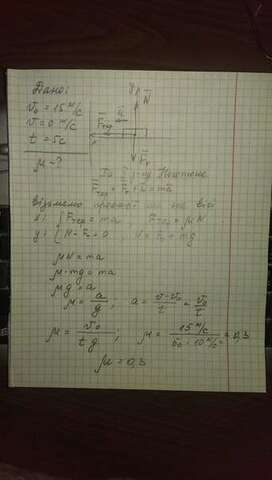 Дано:
v₀ = 15 м/с
v = 0 м/с
t = 5с
μ - ?
y
N
a
Fтер
x
Fт
За з-ну Ньютона
Fтер + Fт + N = ma
візьмемо проекції на осі
x: { Fтер = ma Fтер = μN
y: { N - Fт = 0 N = Fт = mg
μN = ma
μ·mg = ma
μg = a
μ = a/g ; a = v - v₀/t = v₀/t
μ = v₀/tg ; μ = 15 м/с / 5с · 10 м/с² = 0,3
μ = 0,3